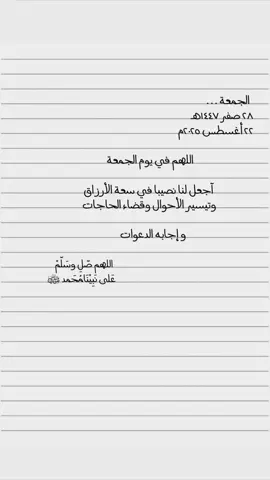 الجمعة ...
٢٨ صفر ١٤٤٧هـ
٢٢ أغسطس ٢٠٢٥م
اللهم في يوم الجمعة
أجعل لنا نصيبا في سعة الأرزاق
وتيسير الأحوال وقضاء الحاجات
وإجابه الدعوات
اللهم صّلِ وسَلّمْ
على نَبِيْنَا مُحَمد ﷺ